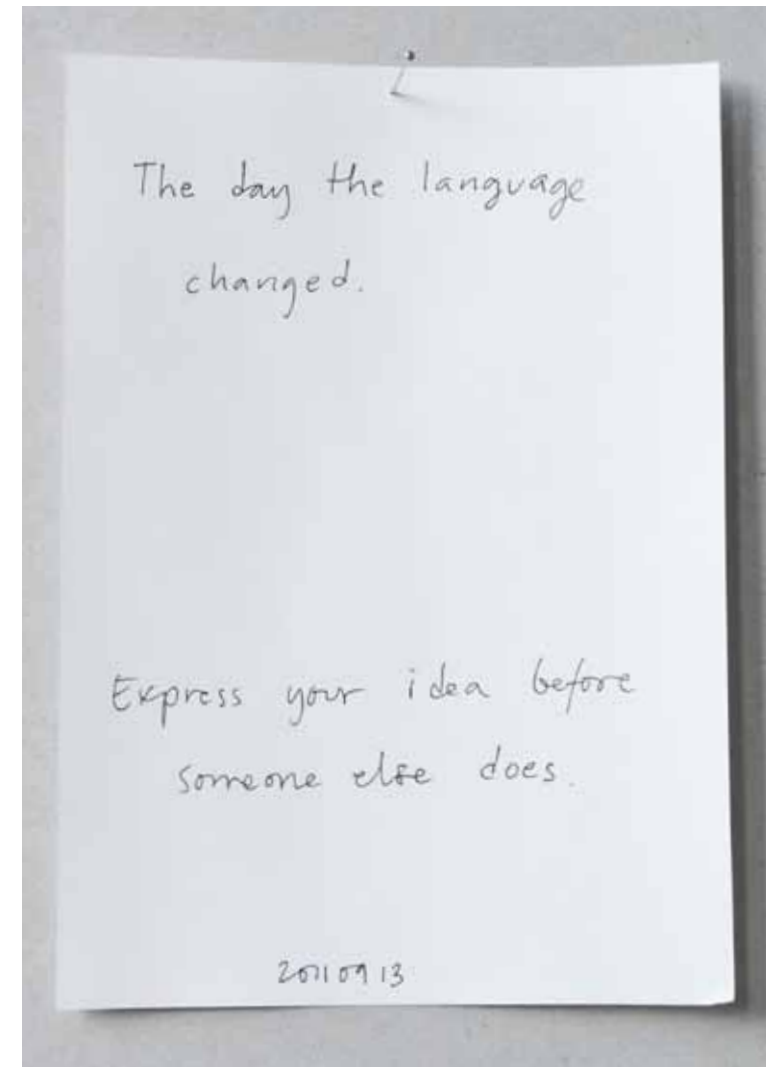 The day the language
changed.
Express your idea before
someone else does.
2011 09 13